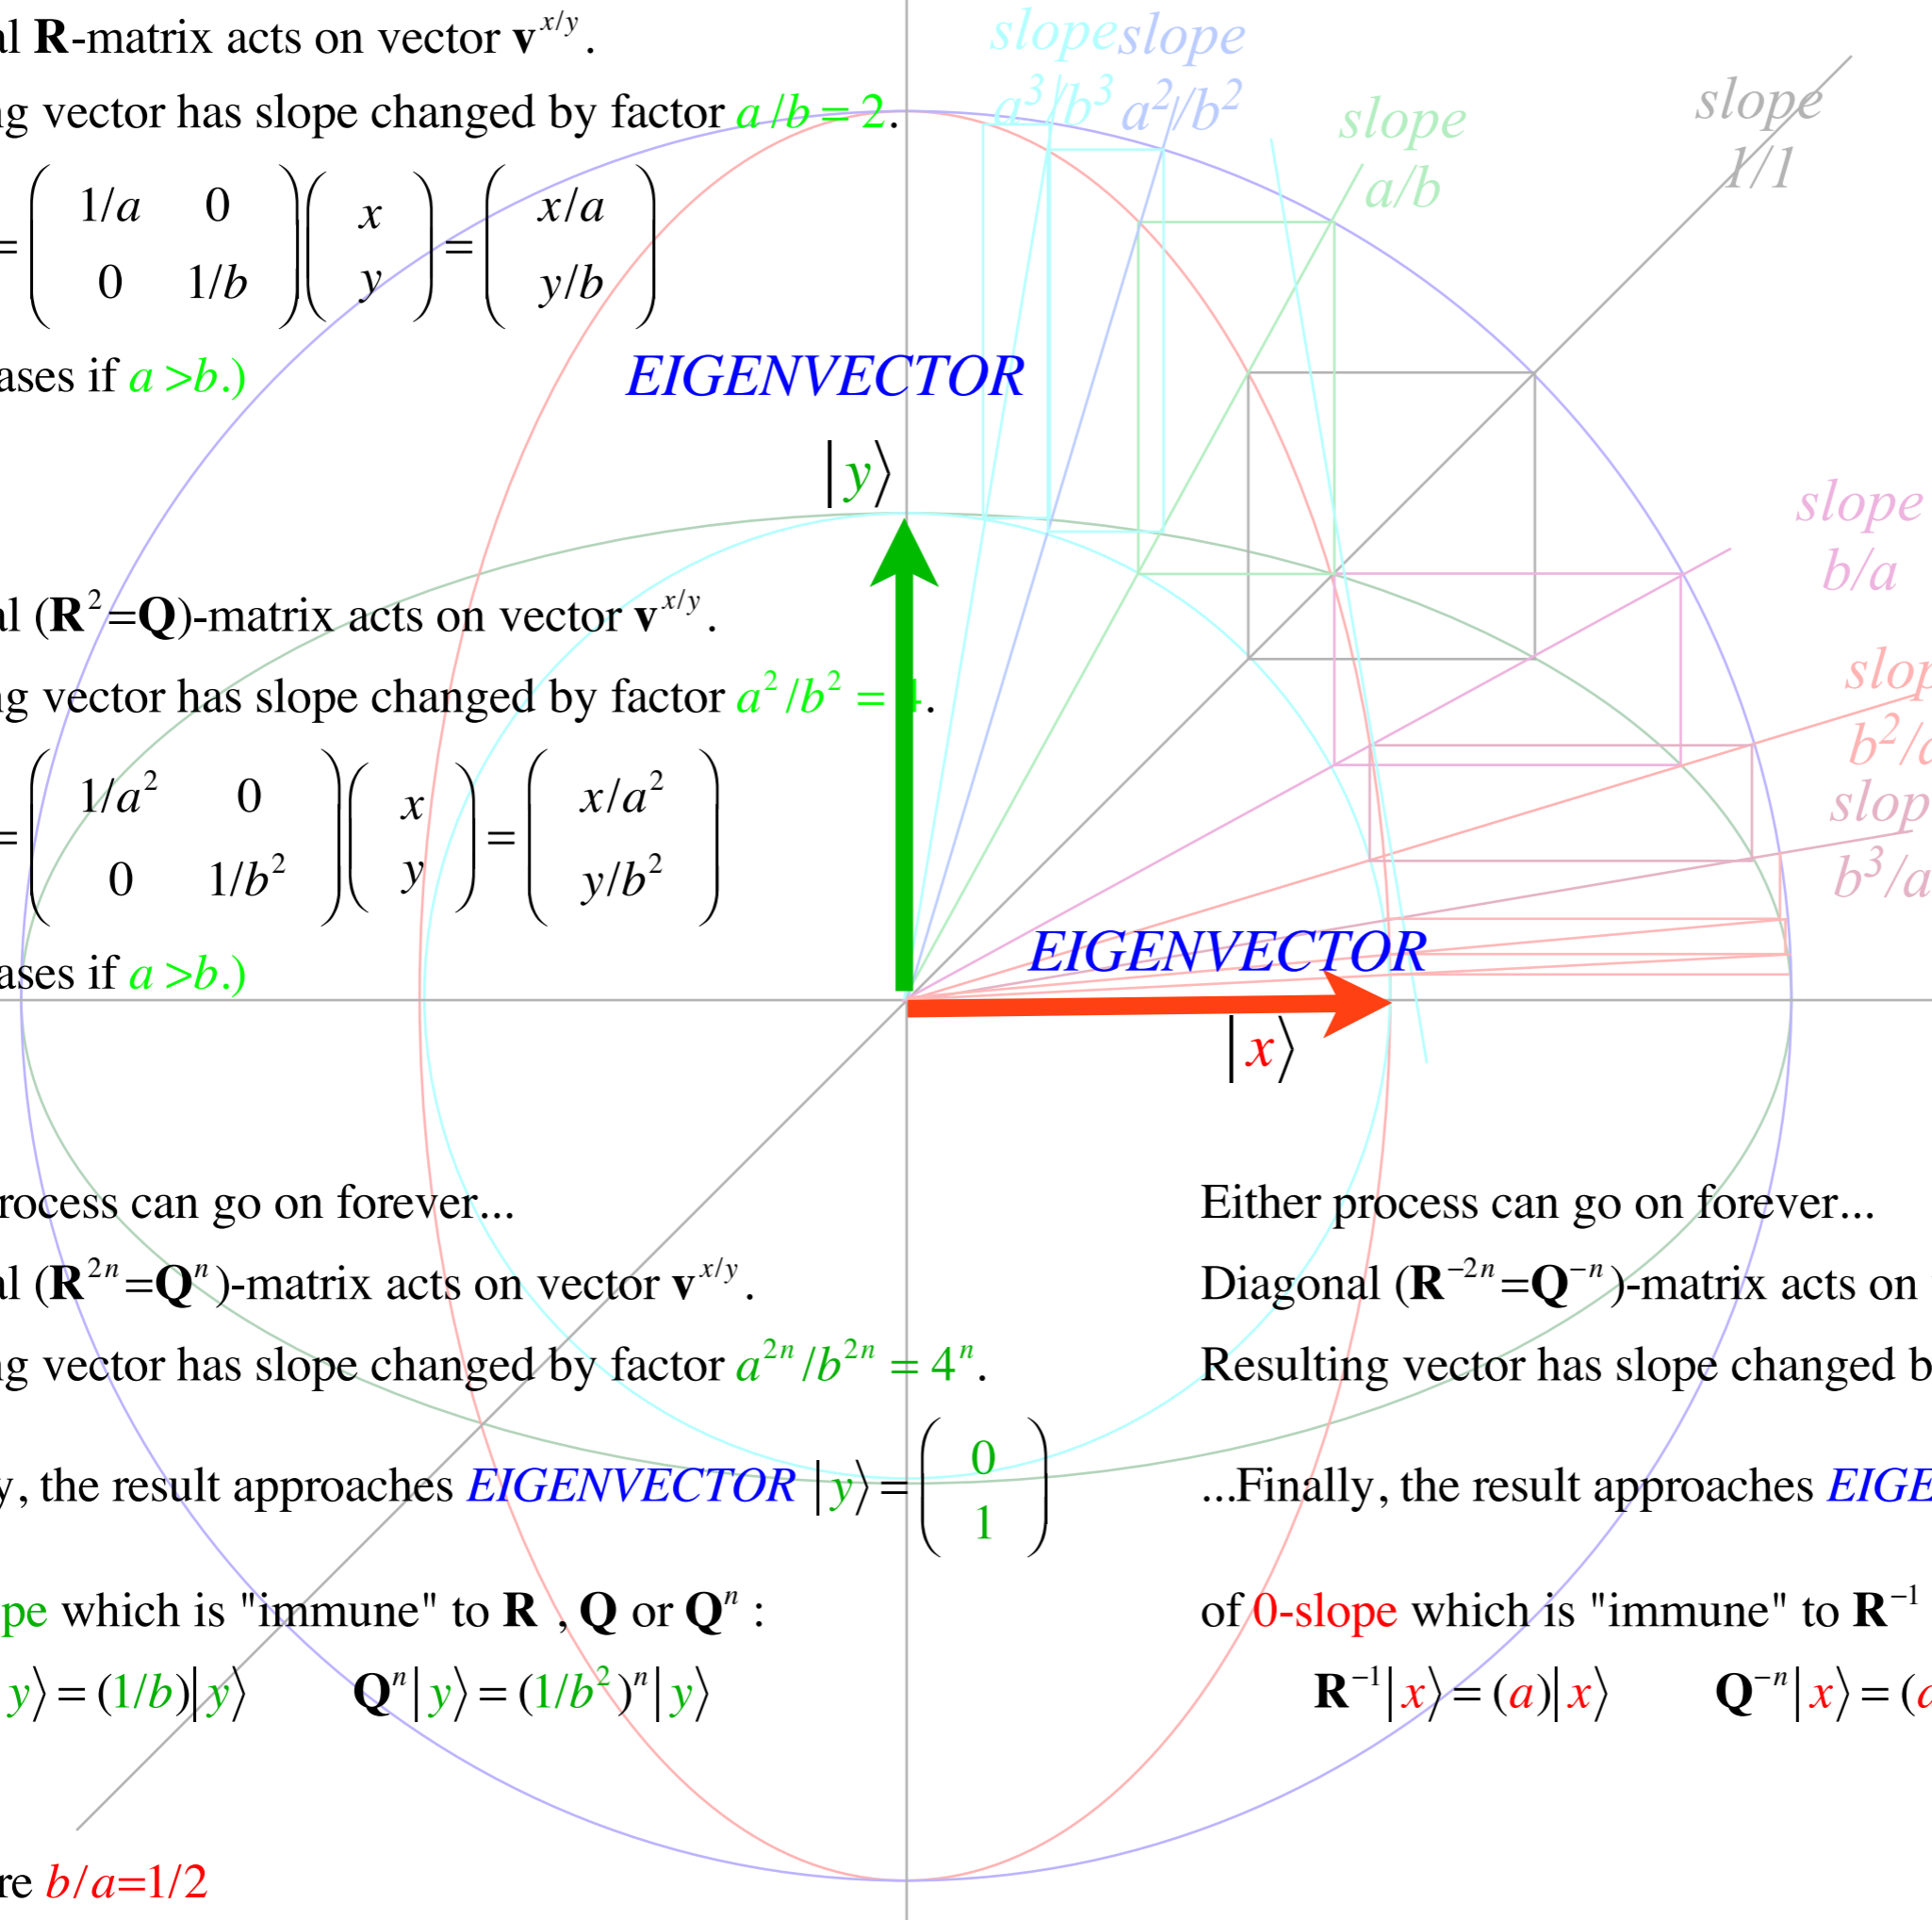 al R-matrix acts on vector v^{x/y}.
ng vector has slope changed by factor a/b = 2.
= ( 1/a 0 ; 0 1/b )( x ; y ) = ( x/a ; y/b )
ases if a >b.)
slope a³/b³
slope a²/b²
slope a/b
slope 1/1
EIGENVECTOR
|y⟩
slope b/a
al (R²=Q)-matrix acts on vector v^{x/y}.
ng vector has slope changed by factor a²/b² = 4.
= ( 1/a² 0 ; 0 1/b² )( x ; y ) = ( x/a² ; y/b² )
ases if a >b.)
slop
b²/a
slop
b³/a
EIGENVECTOR
|x⟩
rocess can go on forever...
al (R^{2n}=Q^n)-matrix acts on vector v^{x/y}.
ng vector has slope changed by factor a^{2n}/b^{2n} = 4^n.
y, the result approaches EIGENVECTOR |y⟩ = ( 0 ; 1 )
pe which is "immune" to R , Q or Q^n :
y⟩ = (1/b)|y⟩ Q^n|y⟩ = (1/b²)^n|y⟩
re b/a=1/2
Either process can go on forever...
Diagonal (R^{-2n}=Q^{-n})-matrix acts on
Resulting vector has slope changed b
...Finally, the result approaches EIGE
of 0-slope which is "immune" to R^{-1}
R^{-1}|x⟩ = (a)|x⟩ Q^{-n}|x⟩ = (a